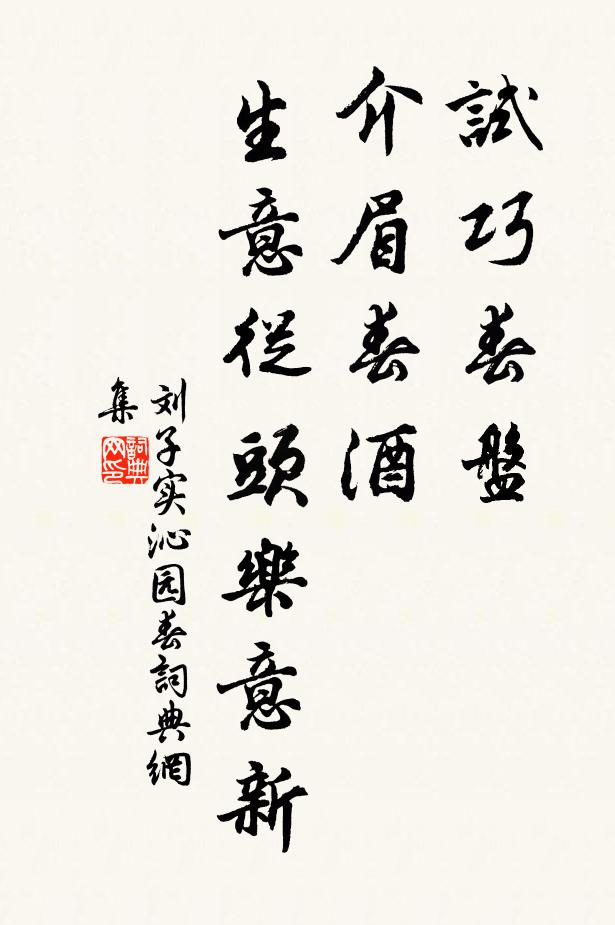 試巧春盤
介眉春酒
生意從頭樂意新
刘子实沁园春詞典網
集
詞典
网印